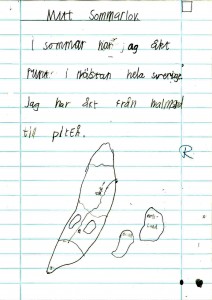 Mitt Sommarlov
i sommar har jag åkt
runt i nästan hela sverige.
Jag har åkt från halmstad
til piteå.
R